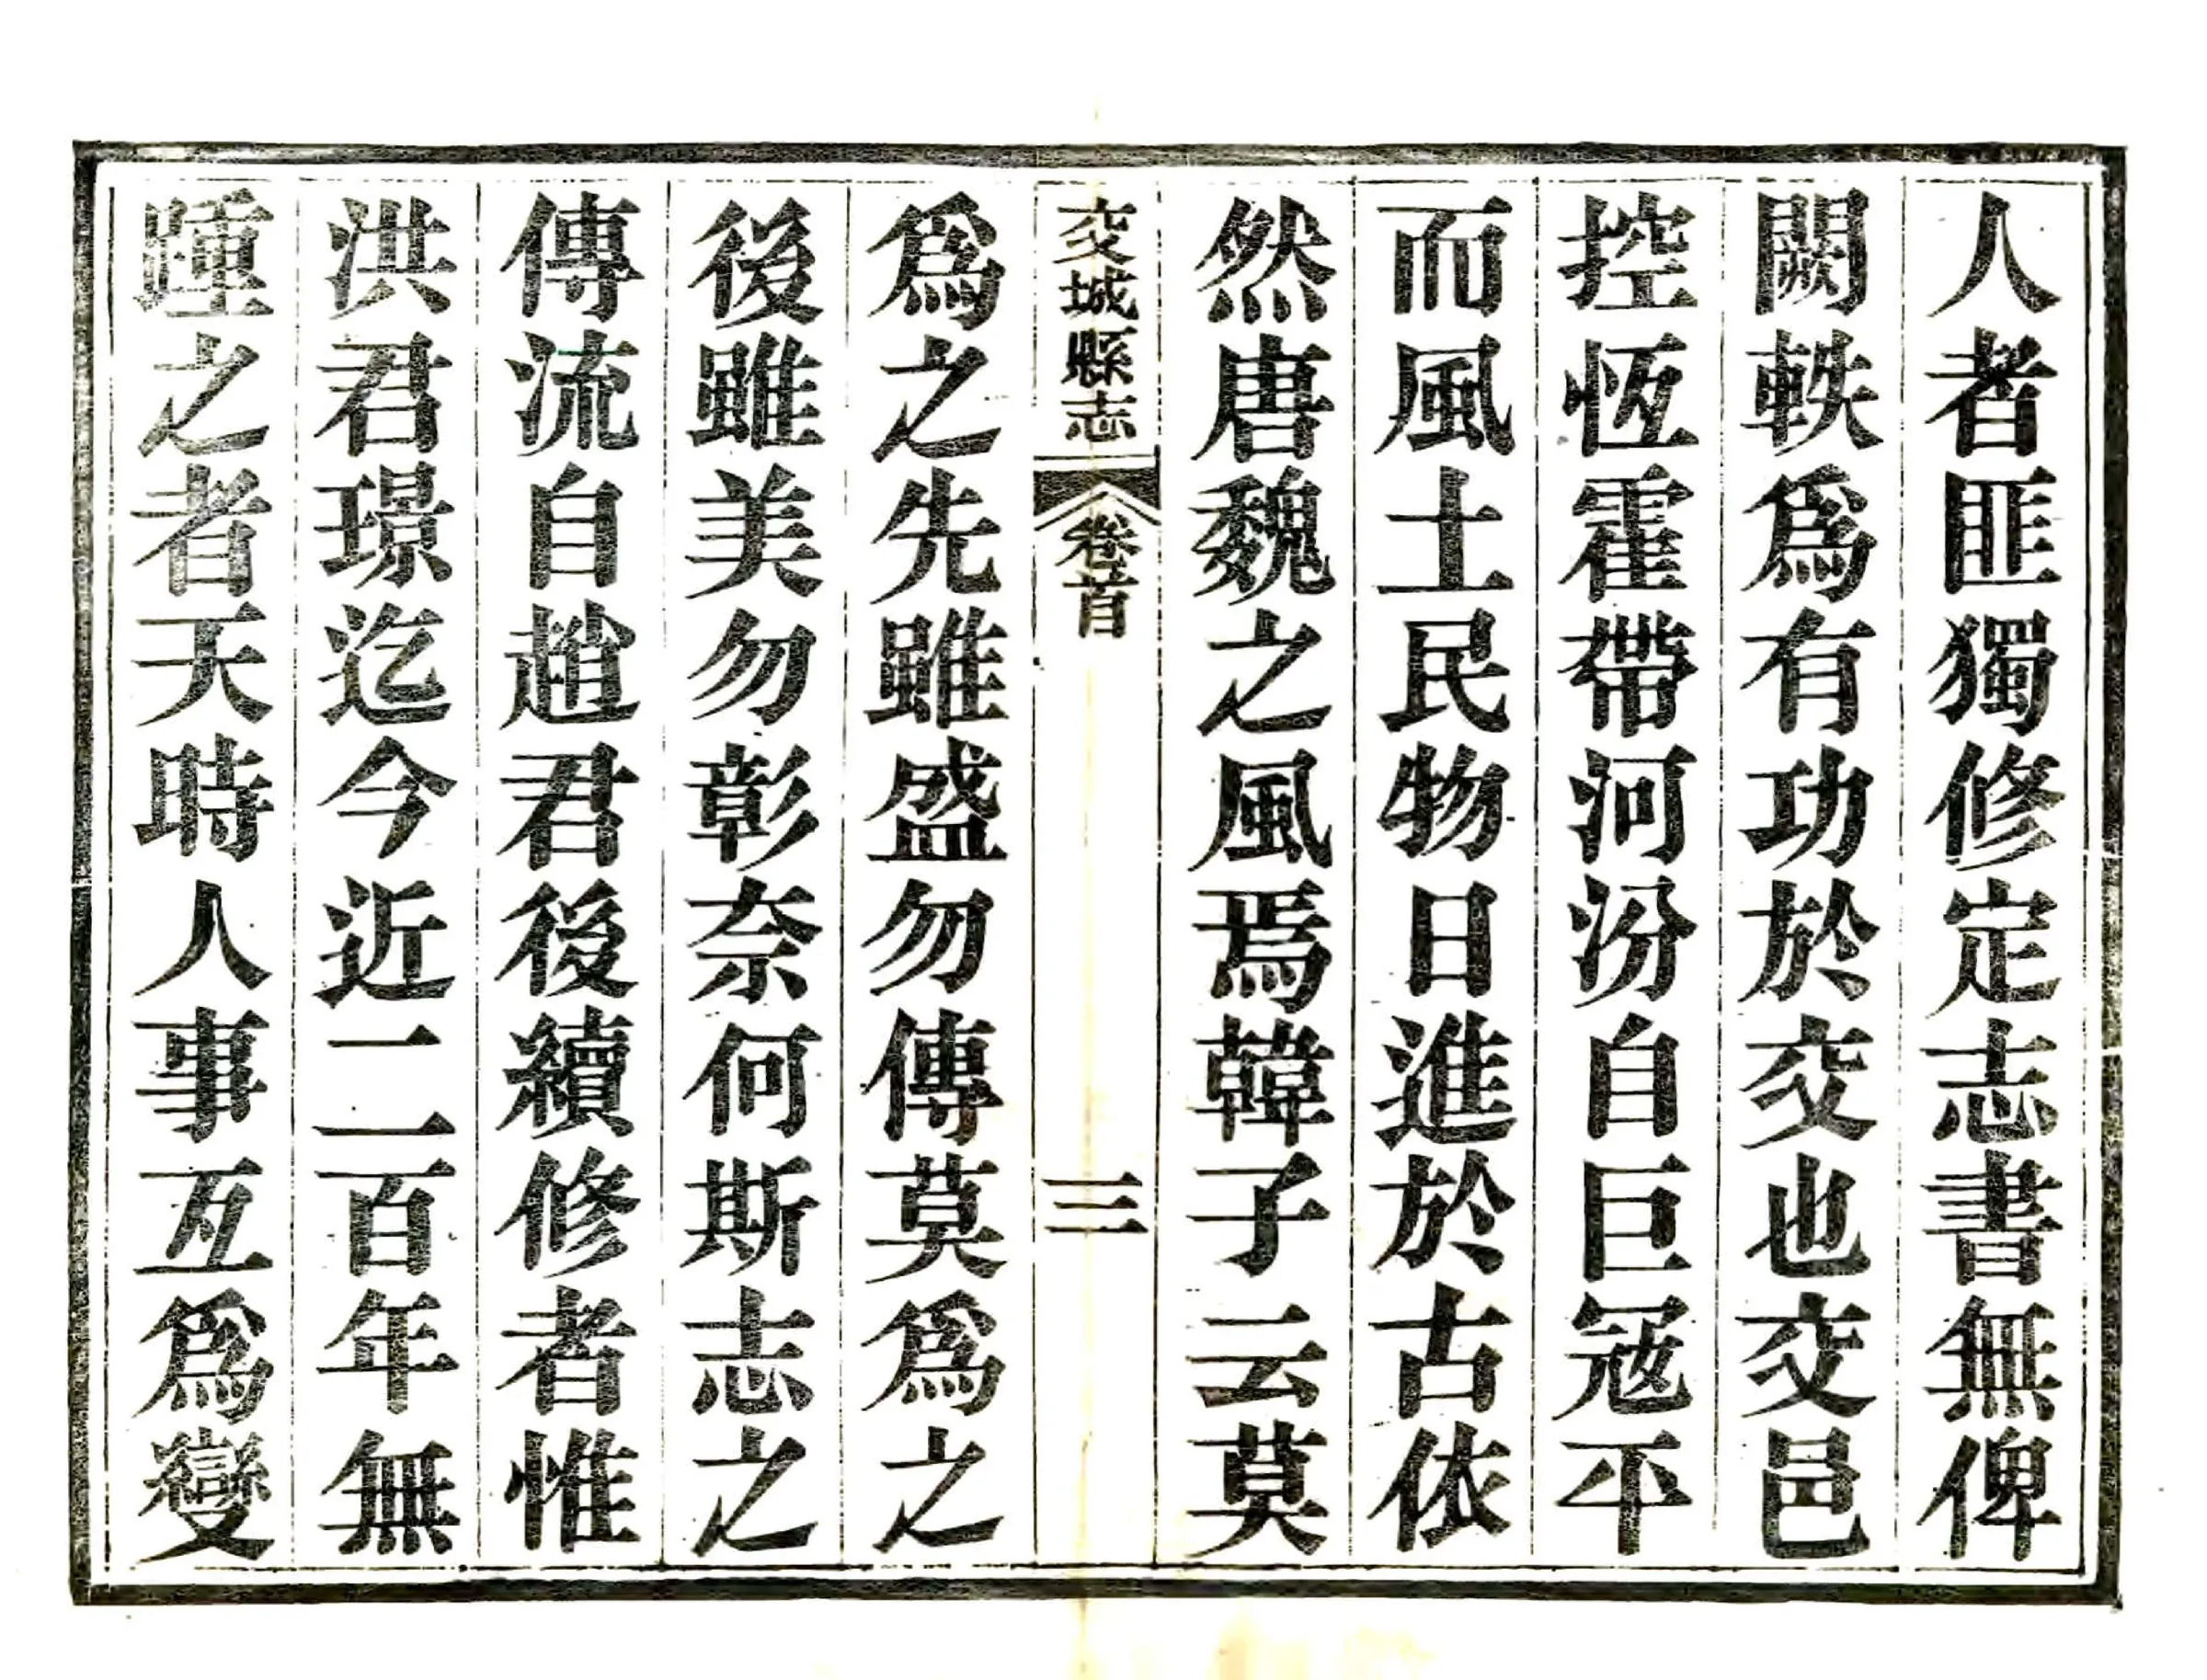 人者匪獨修定志書無俾
闕軼爲有功於交也交邑
控恆霍帶河汾自巨寇平
而風土民物日進於古依
然唐魏之風焉韓子云莫
交城縣志
卷首
三
爲之先雖盛勿傳莫爲之
後雖美勿彰奈何斯志之
傳流自趙君後續修者惟
洪君璟迄今近二百年無
踵之者天時人事互爲變